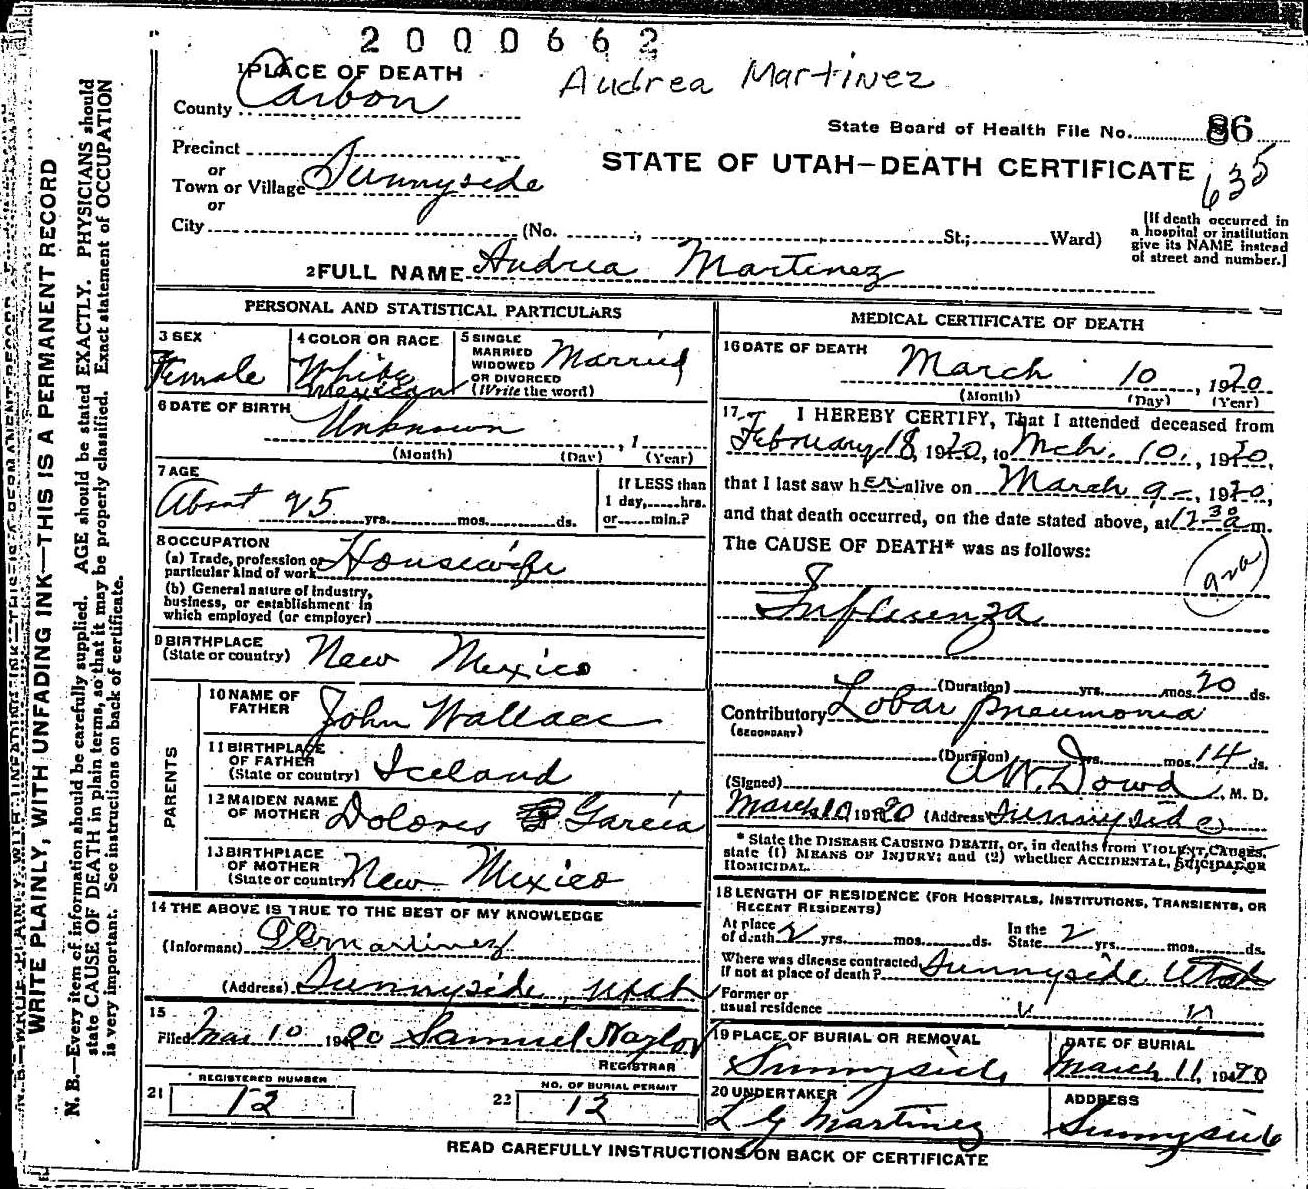 2000662
1 PLACE OF DEATH
Audrea Martinez
County Carbon
State Board of Health File No. 86
Precinct
635
or
Town or Village Sunnyside
STATE OF UTAH—DEATH CERTIFICATE
or
City (No. , St.; Ward)
[If death occurred in
a hospital or institution
give its NAME instead
of street and number.]
2 FULL NAME Audrea Martinez
PERSONAL AND STATISTICAL PARTICULARS
3 SEX
Female
4 COLOR OR RACE
White
Mexican
5 SINGLE
MARRIED
WIDOWED
OR DIVORCED
(Write the word)
Married
6 DATE OF BIRTH
Unknown , 1
(Month) (Day) (Year)
7 AGE
About 25 yrs. mos. ds.
If LESS than
1 day, hrs.
or min.?
8 OCCUPATION
(a) Trade, profession or
particular kind of work Housewife
(b) General nature of industry,
business, or establishment in
which employed (or employer)
9 BIRTHPLACE
(State or country) New Mexico
PARENTS
10 NAME OF
FATHER John Wallace
11 BIRTHPLACE
OF FATHER
(State or country) Iceland
12 MAIDEN NAME
OF MOTHER Dolores Garcia
13 BIRTHPLACE
OF MOTHER
(State or country) New Mexico
14 THE ABOVE IS TRUE TO THE BEST OF MY KNOWLEDGE
(Informant) Martinez
(Address) Sunnyside, Utah
15
Filed Mar 10 1920 Samuel Naylor
REGISTRAR
21 REGISTERED NUMBER
12
22 NO. OF BURIAL PERMIT
12
MEDICAL CERTIFICATE OF DEATH
16 DATE OF DEATH
March 10, 1920
(Month) (Day) (Year)
17 I HEREBY CERTIFY, That I attended deceased from
February 18, 1920, to Mch. 10., 1920,
that I last saw her alive on March 9-, 1920,
and that death occurred, on the date stated above, at 12 30 a m.
The CAUSE OF DEATH* was as follows:
Influenza
(Duration) yrs. mos. 20 ds.
Contributory Lobar pneumonia
(SECONDARY)
(Duration) yrs. mos. 14 ds.
(Signed) A.W. Dowd, M. D.
March 10 1920 (Address) Sunnyside
* State the DISEASE CAUSING DEATH, or, in deaths from VIOLENT CAUSES,
state (1) MEANS OF INJURY; and (2) whether ACCIDENTAL, SUICIDAL OR
HOMICIDAL.
18 LENGTH OF RESIDENCE (FOR HOSPITALS, INSTITUTIONS, TRANSIENTS, OR
RECENT RESIDENTS)
At place
of death 2 yrs. mos. ds.
In the
State 2 yrs. mos. ds.
Where was disease contracted,
if not at place of death? Sunnyside Utah
Former or
usual residence " "
19 PLACE OF BURIAL OR REMOVAL
Sunnyside
DATE OF BURIAL
March 11, 1920
20 UNDERTAKER
Martinez
ADDRESS
Sunnyside
READ CAREFULLY INSTRUCTIONS ON BACK OF CERTIFICATE
WRITE PLAINLY, WITH UNFADING INK—THIS IS A PERMANENT RECORD
N. B.—Every item of information should be carefully supplied. AGE should be stated EXACTLY. PHYSICIANS should
state CAUSE OF DEATH in plain terms, so that it may be properly classified. Exact statement of OCCUPATION
is very important. See instructions on back of certificate.